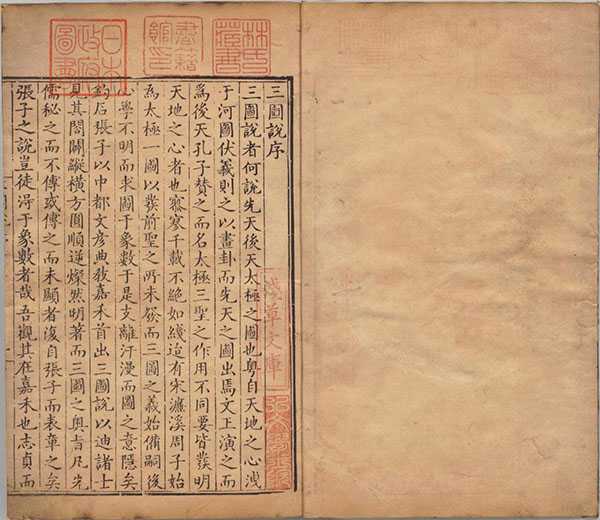 林氏藏書
書籍館印
日本政府圖書
三圖說序
三圖說者何說先天後天太極之圖也粵自天地之心洩
于河圖伏羲則之以畫卦而先天之圖出焉文王演之而
爲後天孔子贊之而名太極三聖之作用不同要皆發明
天地之心者也寥寥千載不絕如綫迨有宋濂溪周子始
爲太極一圖以發前聖之所未發而三圖之義始備嗣後
學不明而求圖于象數于是支離汗漫而圖之意隱矣
石張子以中都文彥典敎嘉禾首出三圖說以迪諸士
見其闔闢縱橫方圓順逆燦然明著而三圖之奧旨凡先
儒秘之而不傳或傳之而未顯者復自張子而表章之矣
張子之說豈徒淂于象數者哉吾觀其在嘉禾也志貞而
淺草文庫